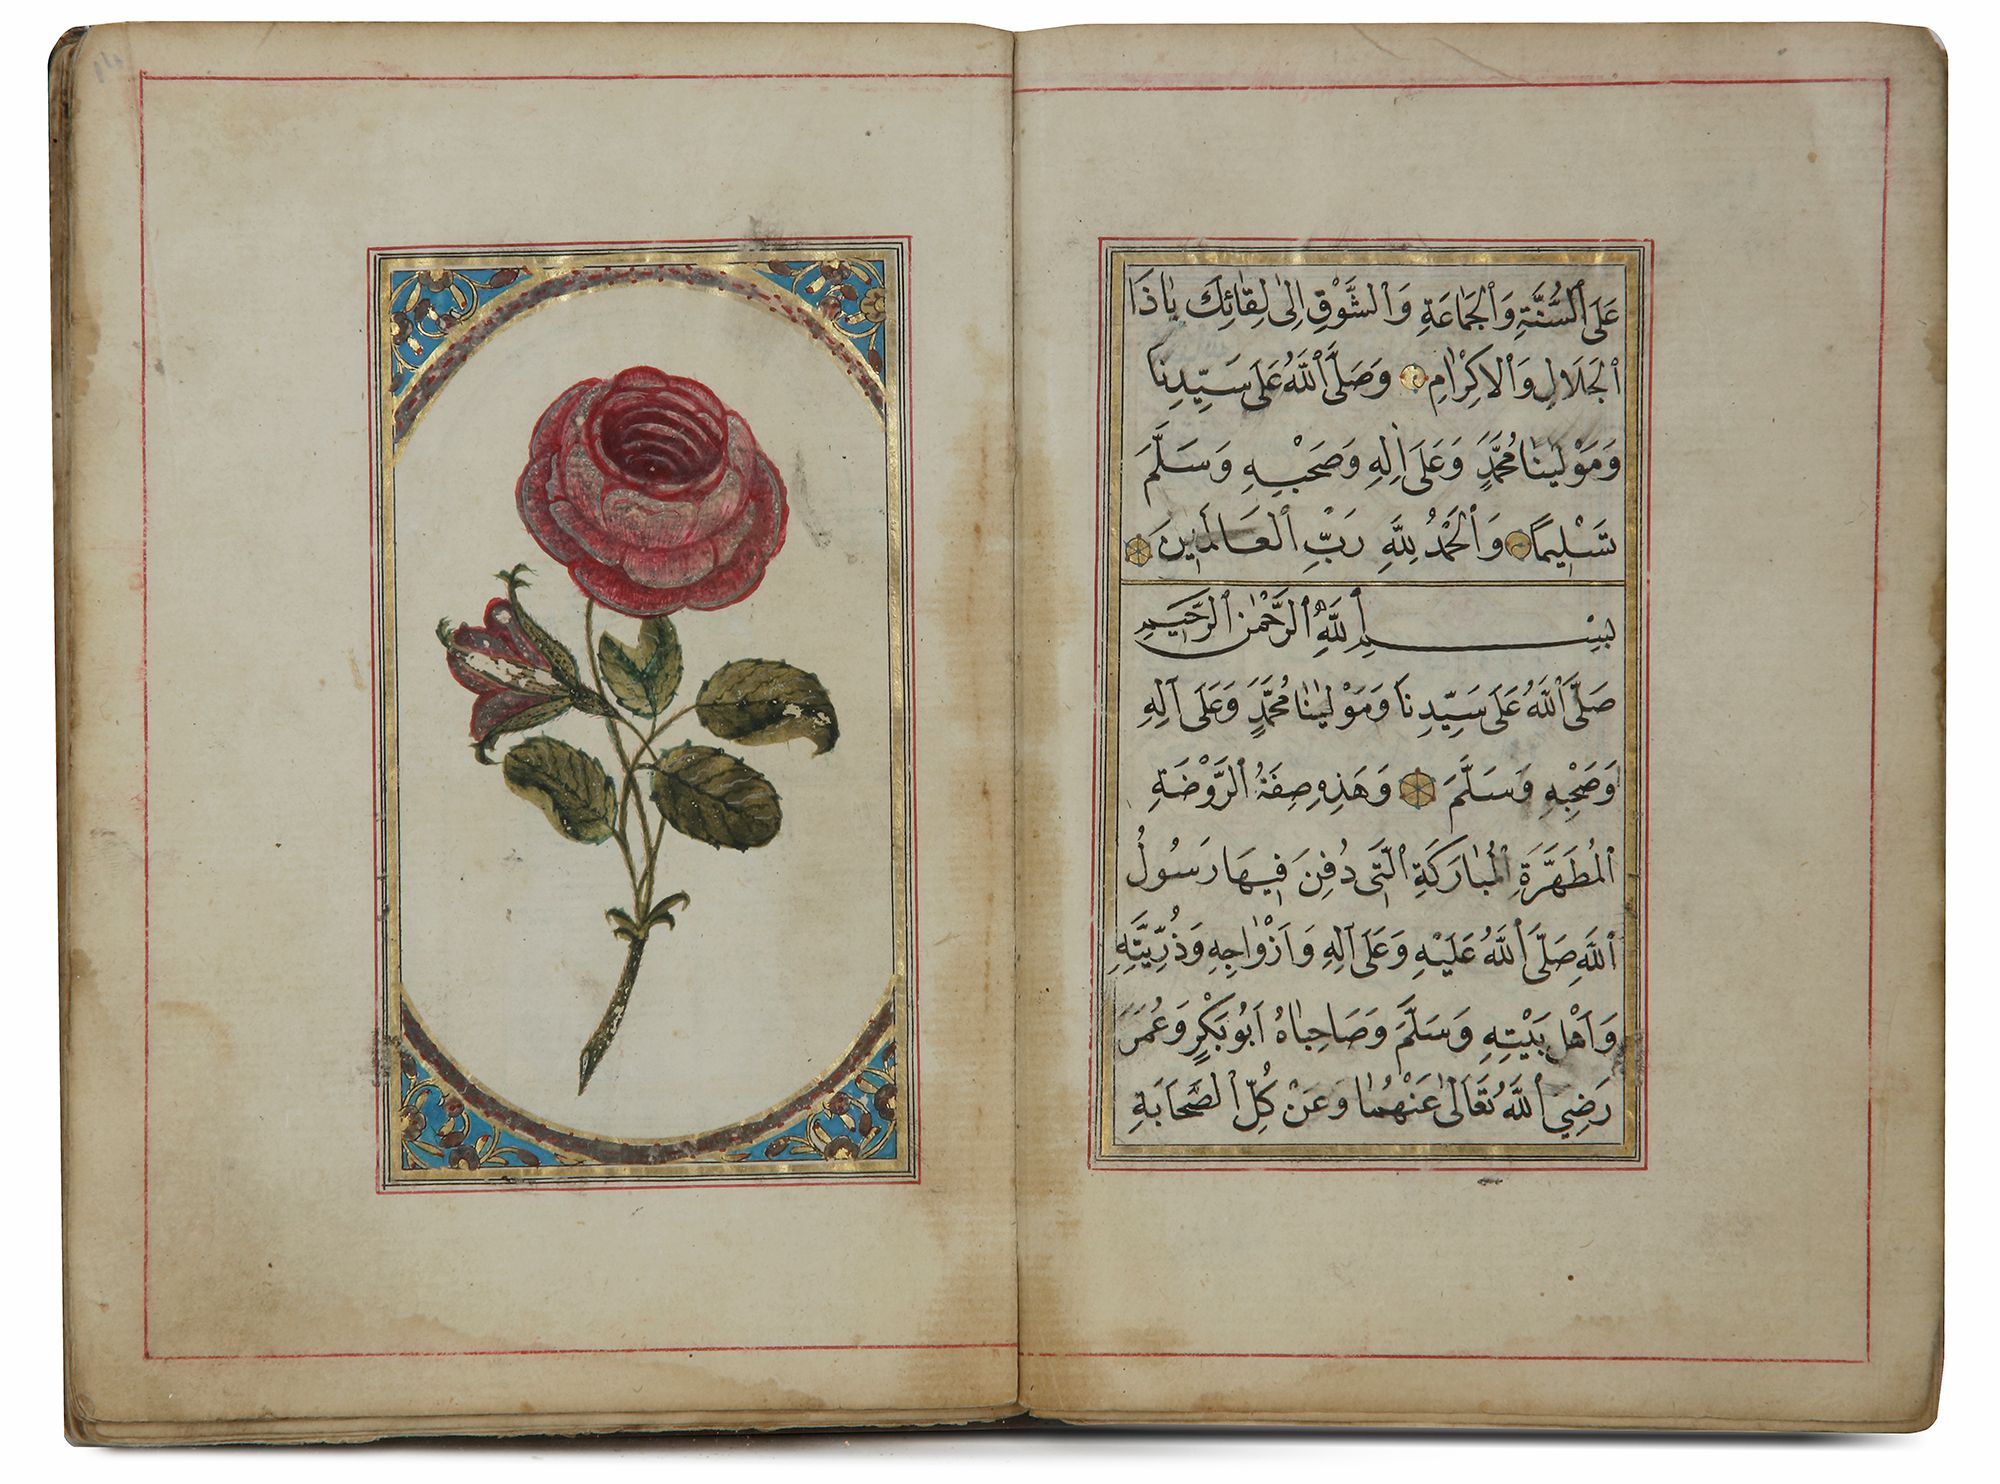 عَلَى ٱلسُّنَّةِ وَٱلْجَمَاعَةِ وَٱلشَّوْقِ إِلَى لِقَائِكَ يَا ذَا
ٱلْجَلَالِ وَٱلْاِكْرَامِ وَصَلَّى ٱللَّهُ عَلَى سَيِّدِنَا
وَمَوْلَيٰنَا مُحَمَّدٍ وَعَلَى اٰلِهِ وَصَحْبِهِ وَسَلَّمَ
تَسْلِيمًا وَٱلْحَمْدُ لِلَّهِ رَبِّ ٱلْعَالَمِينَ
بِسْمِ ٱللَّهِ ٱلرَّحْمٰنِ ٱلرَّحِيمِ
صَلَّى ٱللَّهُ عَلَى سَيِّدِنَا وَمَوْلَيٰنَا مُحَمَّدٍ وَعَلَى آلِهِ
وَصَحْبِهِ وَسَلَّمَ وَهَذِهِ صِفَةُ ٱلرَّوْضَةِ
ٱلْمُطَهَّرَةِ ٱلْمُبَارَكَةِ ٱلَّتِى دُفِنَ فِيهَا رَسُولُ
ٱللَّهِ صَلَّى ٱللَّهُ عَلَيْهِ وَعَلَى آلِهِ وَاَزْوَاجِهِ وَذُرِّيَّتِهِ
وَاَهْلِ بَيْتِهِ وَسَلَّمَ وَصَاحِبَاهُ اَبُو بَكْرٍ وَعُمَرَ
رَضِيَ ٱللَّهُ تَعَالَى عَنْهُمَا وَعَنْ كُلِّ ٱلصَّحَابَةِ